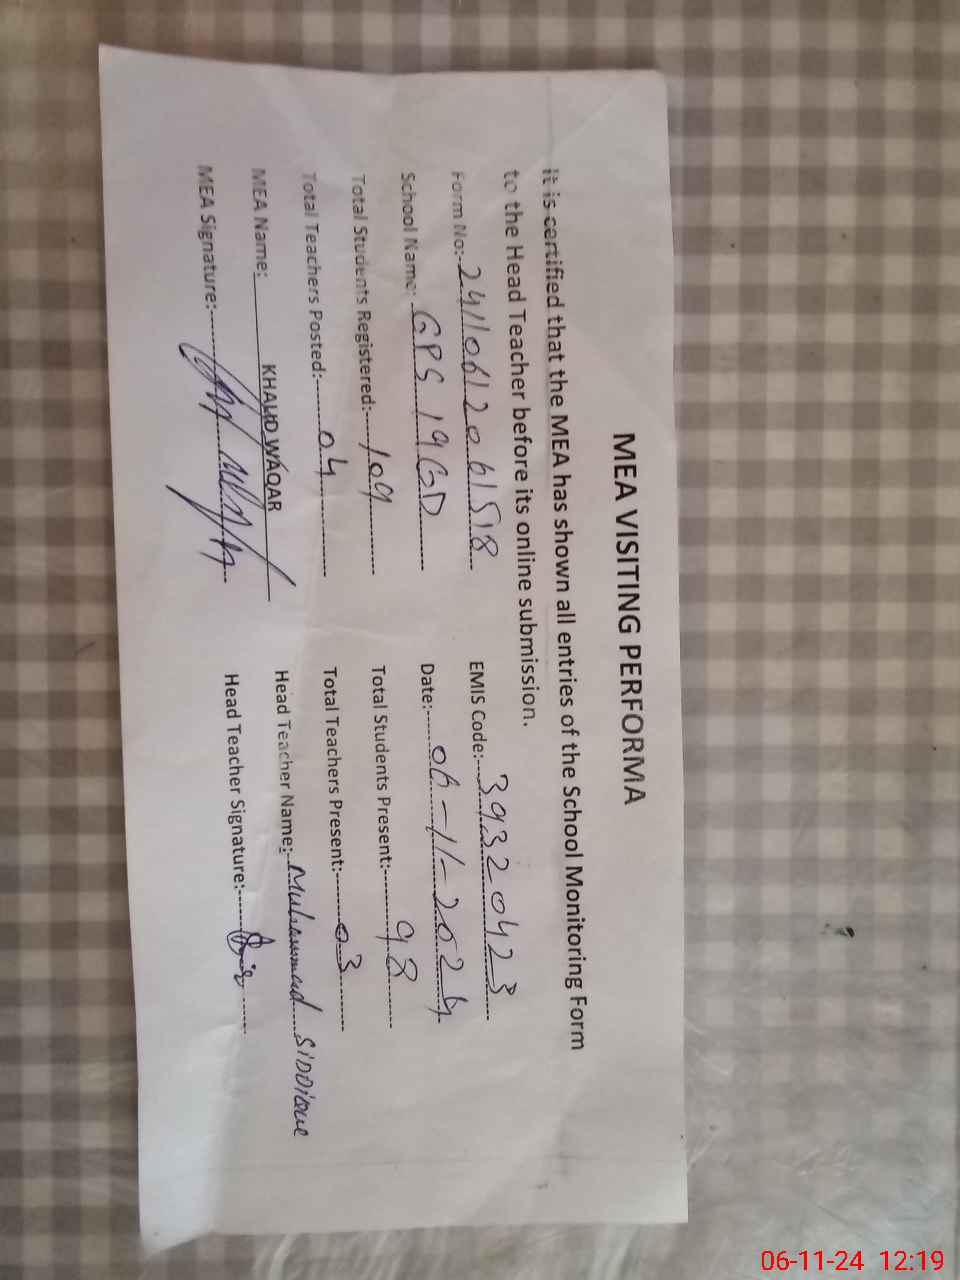 MEA VISITING PERFORMA
It is certified that the MEA has shown all entries of the School Monitoring Form
to the Head Teacher before its online submission.
Form No:- 24110612061518 EMIS Code:- 39320423
School Name: GPS 19GD Date:- 06-11-2024
Total Students Registered:- 109 Total Students Present:- 98
Total Teachers Posted:- 04 Total Teachers Present:- 03
MEA Name: KHALID WAQAR Head Teacher Name:- Muhammad SIDDIQUE
MEA Signature:- Head Teacher Signature:-
06-11-24 12:19